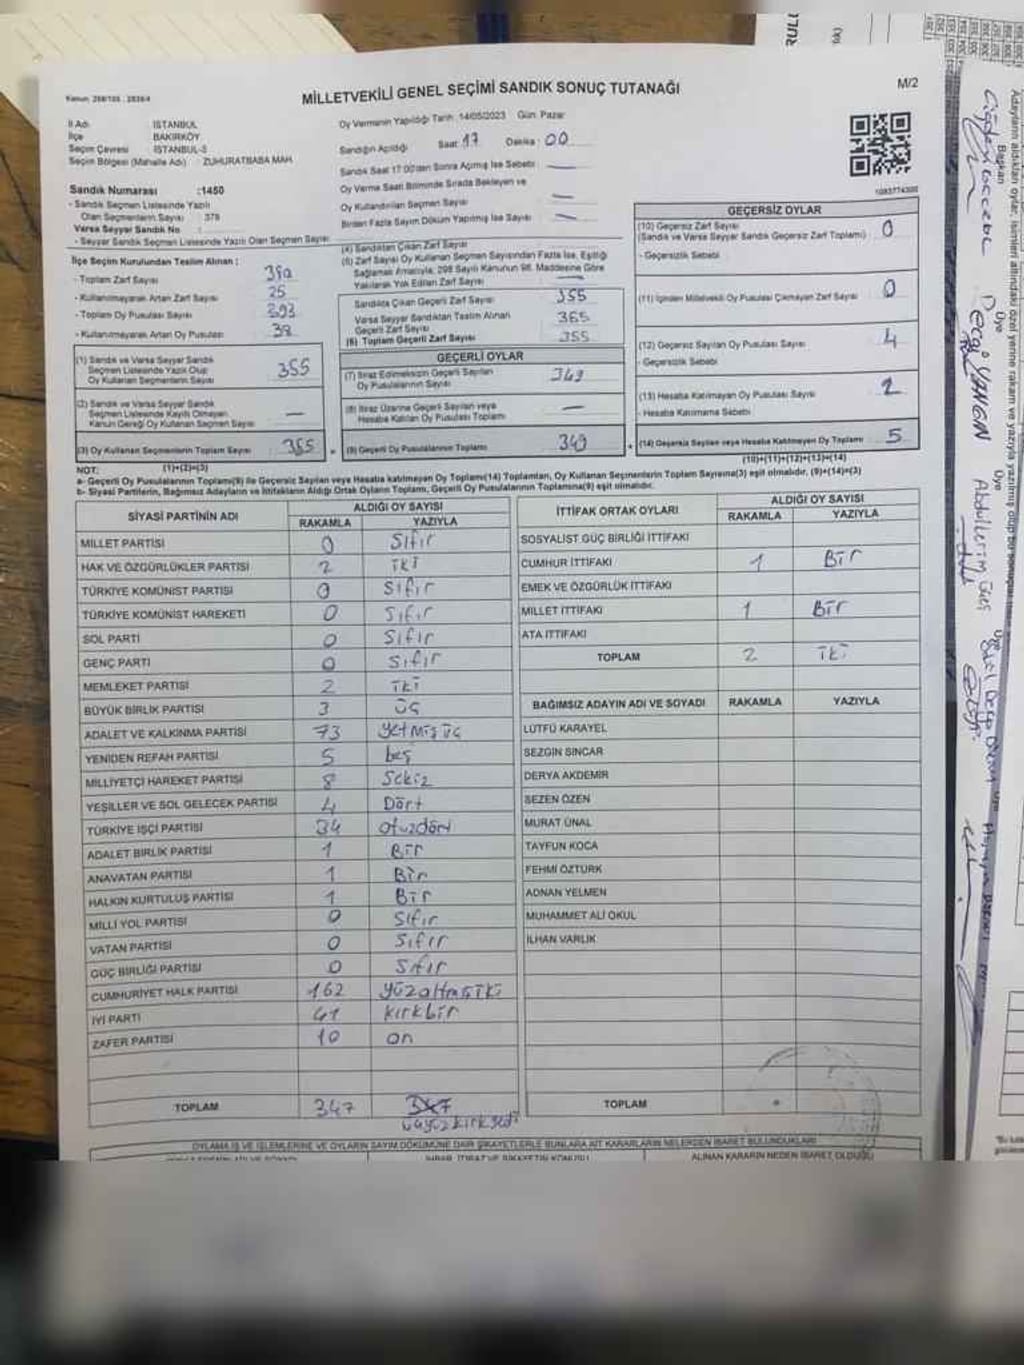 Kanun: 298/105 , 2839/4
MİLLETVEKİLİ GENEL SEÇİMİ SANDIK SONUÇ TUTANAĞI
M/2
İl Adı İSTANBUL
İlçe BAKIRKÖY
Seçim Çevresi İSTANBUL-3
Seçim Bölgesi (Mahalle Adı) : ZUHURATBABA MAH.
Sandık Numarası :1450
- Sandık Seçmen Listesinde Yazılı
Olan Seçmenlerin Sayısı : 378
Varsa Seyyar Sandık No
- Seyyar Sandık Seçmen Listesinde Yazılı Olan Seçmen Sayısı
Oy Vermenin Yapıldığı Tarih :14/05/2023 Gün: Pazar
Sandığın Açıldığı Saat: 17 Dakika : 00
Sandık Saat 17:00'den Sonra Açılmış İse Sebebi —
Oy Verme Saati Bitiminde Sırada Bekleyen ve
Oy Kullandırılan Seçmen Sayısı —
Birden Fazla Sayım Döküm Yapılmış İse Sayısı —
1093774300
İlçe Seçim Kurulundan Teslim Alınan :
- Toplam Zarf Sayısı
- Kullanılmayarak Artan Zarf Sayısı 25
- Toplam Oy Pusulası Sayısı 393
- Kullanılmayarak Artan Oy Pusulası 38
(1) Sandık ve Varsa Seyyar Sandık
Seçmen Listesinde Yazılı Olup
Oy Kullanan Seçmenlerin Sayısı 355
(2) Sandık ve Varsa Seyyar Sandık
Seçmen Listesinde Kayıtlı Olmayan
Kanun Gereği Oy Kullanan Seçmen Sayısı —
(3) Oy Kullanan Seçmenlerin Toplam Sayısı 355
(1)+(2)=(3)
(4) Sandıktan Çıkan Zarf Sayısı
(5) Zarf Sayısı Oy Kullanan Seçmen Sayısından Fazla İse, Eşitliği
Sağlamak Amacıyla; 298 Sayılı Kanunun 98. Maddesine Göre
Yakılarak Yok Edilen Zarf Sayısı —
Sandıkta Çıkan Geçerli Zarf Sayısı 355
Varsa Seyyar Sandıktan Teslim Alınan
Geçerli Zarf Sayısı 355
(6) Toplam Geçerli Zarf Sayısı 355
GEÇERLİ OYLAR
(7) İtiraz Edilmeksizin Geçerli Sayılan
Oy Pusulalarının Sayısı 349
(8) İtiraz Üzerine Geçerli Sayılan veya
Hesaba Katılan Oy Pusulası Toplamı —
(9) Geçerli Oy Pusulalarının Toplamı 349
GEÇERSİZ OYLAR
(10) Geçersiz Zarf Sayısı 0
(Sandık ve Varsa Seyyar Sandık Geçersiz Zarf Toplamı)
- Geçersizlik Sebebi
(11) İçinden Milletvekili Oy Pusulası Çıkmayan Zarf Sayısı 0
(12) Geçersiz Sayılan Oy Pusulası Sayısı 4
- Geçersizlik Sebebi
(13) Hesaba Katılmayan Oy Pusulası Sayısı
- Hesaba Katılmama Sebebi
(14) Geçersiz Sayılan veya Hesaba Katılmayan Oy Toplamı 5
(10)+(11)+(12)+(13)=(14)
NOT:
a- Geçerli Oy Pusulaları(9) ile Geçersiz Sayılan veya Hesaba katılmayan Oy Toplamı(14) Toplamları, Oy Kullanan Seçmenlerin Toplam Sayısına(3) eşit olmalıdır. (9)+(14)=(3)
b- Siyasi Partilerin, Bağımsız Adayların ve İttifakların Aldığı Ortak Oyların Toplamı, Geçerli Oy Pusulalarının Toplamına(9) eşit olmalıdır.
SİYASİ PARTİNİN ADI ALDIĞI OY SAYISI
RAKAMLA YAZIYLA
MİLLET PARTİSİ 0 Sıfır
HAK VE ÖZGÜRLÜKLER PARTİSİ 2 iki
TÜRKİYE KOMÜNİST PARTİSİ 0 Sıfır
TÜRKİYE KOMÜNİST HAREKETİ 0 Sıfır
SOL PARTİ 0 Sıfır
GENÇ PARTİ 0 Sıfır
MEMLEKET PARTİSİ 2 iki
BÜYÜK BİRLİK PARTİSİ 3 üç
ADALET VE KALKINMA PARTİSİ 73 yetmiş üç
YENİDEN REFAH PARTİSİ 5 beş
MİLLİYETÇİ HAREKET PARTİSİ 8 Sekiz
YEŞİLLER VE SOL GELECEK PARTİSİ 4 Dört
TÜRKİYE İŞÇİ PARTİSİ 34 otuzdört
ADALET BİRLİK PARTİSİ 1 Bir
ANAVATAN PARTİSİ 1 Bir
HALKIN KURTULUŞ PARTİSİ 1 Bir
MİLLİ YOL PARTİSİ 0 Sıfır
VATAN PARTİSİ 0 Sıfır
GÜÇ BİRLİĞİ PARTİSİ 0 Sıfır
CUMHURİYET HALK PARTİSİ 162 yüzaltmışiki
İYİ PARTİ 41 kırkbir
ZAFER PARTİSİ 10 on
TOPLAM 347 347
üçyüzkırkyedi
İTTİFAK ORTAK OYLARI ALDIĞI OY SAYISI
RAKAMLA YAZIYLA
SOSYALİST GÜÇ BİRLİĞİ İTTİFAKI
CUMHUR İTTİFAKI 1 Bir
EMEK VE ÖZGÜRLÜK İTTİFAKI
MİLLET İTTİFAKI 1 Bir
ATA İTTİFAKI
TOPLAM 2 iki
BAĞIMSIZ ADAYIN ADI VE SOYADI RAKAMLA YAZIYLA
LÜTFÜ KARAYEL
SEZGİN SİNCAR
DERYA AKDEMİR
SEZEN ÖZEN
MURAT ÜNAL
TAYFUN KOCA
FEHMİ ÖZTÜRK
ADNAN YELMEN
MUHAMMET ALİ OKUL
İLHAN VARLIK
TOPLAM
OYLAMA İŞ VE İŞLEMLERİNE VE OYLARIN SAYIM DÖKÜMÜNE DAİR ŞİKAYETLERLE BUNLARA AİT KARARLARIN NELERDEN İBARET BULUNDUKLARI
İHBAR, İTİRAZ VE ŞİKAYETİN KONUSU
ALINAN KARARIN NEDEN İBARET OLDUĞU
Başkan
Üye
Üye
Üye
Abdulkerim